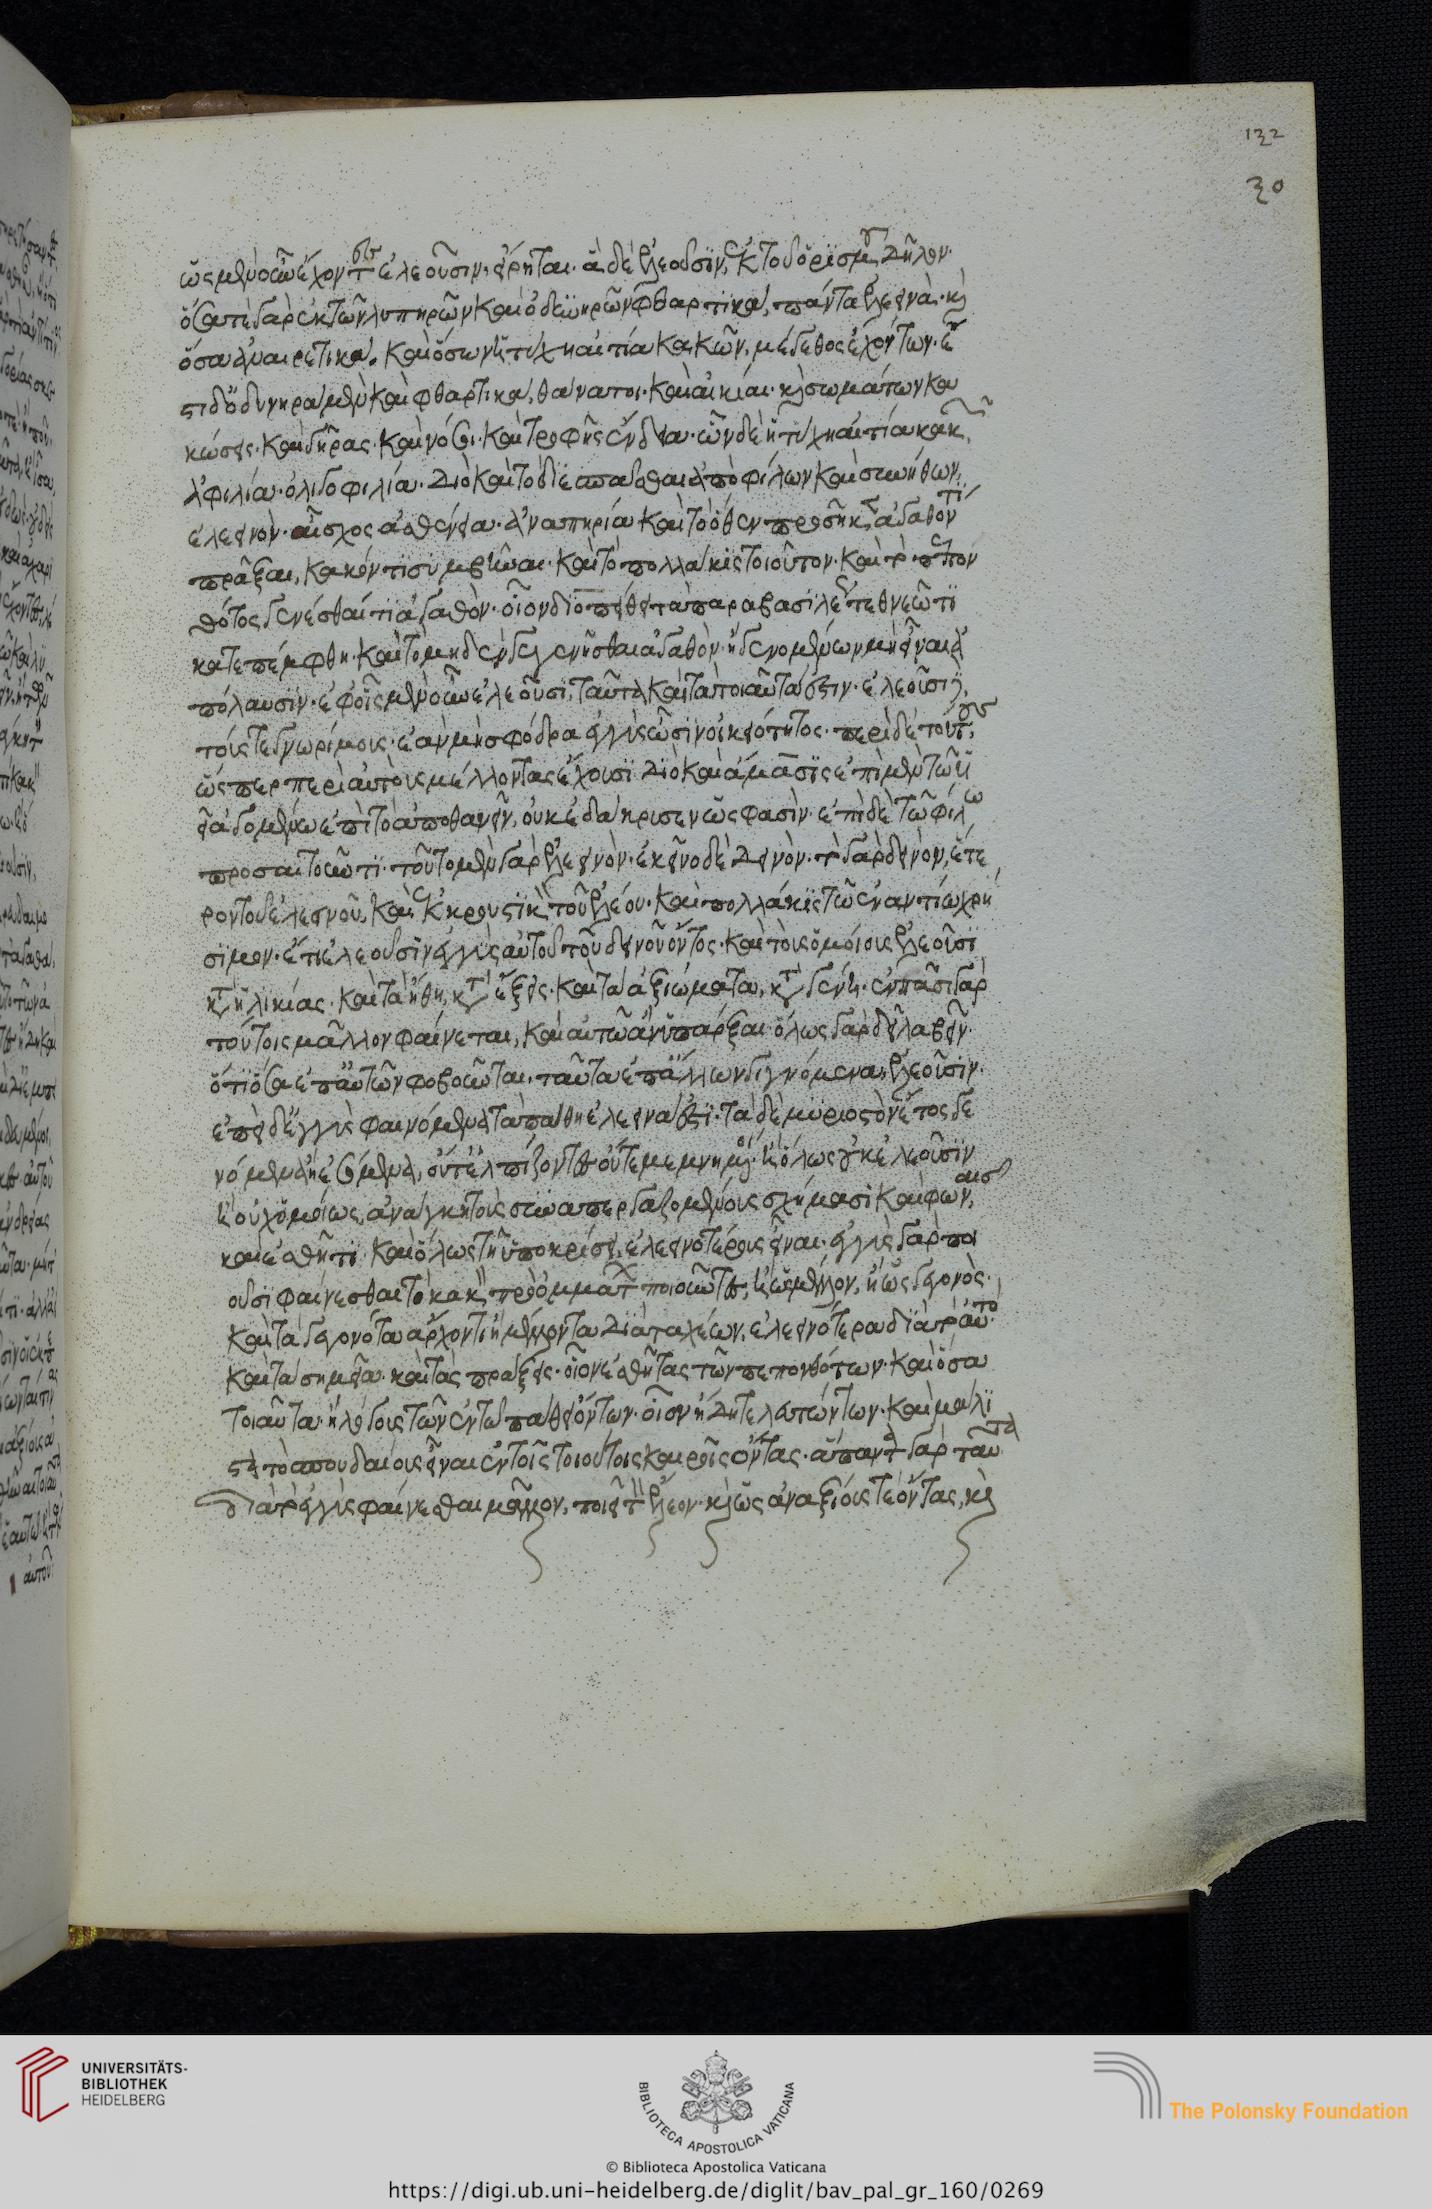 132
30
ὡς μὲν οὖν ἔχοντες ἐλεοῦσιν, εἴρηται· ἃ δὲ ἐλεοῦσιν, ἐκ τοῦ ὁρισμοῦ δῆλον·
ὅσα τε γὰρ ἐκ τῶν λυπηρῶν καὶ ὀδυνηρῶν φθαρτικὰ, πάντα ἐλεεινὰ· καὶ
ὅσα ἀναιρετικά. καὶ ὅσων ἡ τύχη αἰτία κακῶν, μέγεθος ἐχόντων· ἔ
στι δ' ὀδυνηρὰ μὲν καὶ φθαρτικὰ, θάνατοι· καὶ αἰκίαι· καὶ σωμάτων κα
κώσεις· καὶ γῆρας· καὶ νόσοι· καὶ τροφῆς ἔνδεια· ὧν δὲ ἡ τύχη αἰτία κακῶν,
ἀφιλία· ὀλιγοφιλία· διὸ καὶ τὸ διεσπᾶσθαι ἀπὸ φίλων καὶ συνήθων,
ἐλεεινὸν· αἶσχος ἀσθένεια· ἀναπηρία καὶ τὸ ὅθεν προσῆκεν ἀγαθόν τι
πρᾶξαι, κακόν τι συμβῆναι· καὶ τὸ πολλάκις τοιοῦτον· καὶ τὸ πεπον
θότος γενέσθαι τι ἀγαθὸν· οἷον διοπείθει τὰ παρὰ βασιλέως τεθνεῶτι
κατεπέμφθη· καὶ τὸ μηδὲν γεγενῆσθαι ἀγαθὸν· ἢ γενομένων μὴ εἶναι ἀ
πόλαυσιν· ἐφ' οἷς μὲν οὖν ἐλεοῦσι, ταῦτα καὶ τὰ τοιαῦτά ἐστιν· ἐλεοῦσι δὲ
τούς τε γνωρίμους· ἐὰν μὴ σφόδρα ἐγγὺς ὦσιν οἰκειότητος· περὶ δὲ τούτους,
ὥσπερ περὶ αὐτοὺς μέλλοντας ἔχουσι διὸ καὶ ἄμασις ἐπὶ μὲν τῷ υἱ
εῖ ἀγομένῳ ἐπὶ τὸ ἀποθανεῖν, οὐκ ἐδάκρισεν ὥς φασὶν· ἐπὶ δὲ τῷ φίλῳ
προσαιτοῦντι· τοῦτο μὲν γὰρ ἐλεεινὸν· ἐκεῖνο δὲ δεινὸν· τὸ γὰρ δεινὸν, ἕτε
ρον τοῦ ἐλεεινοῦ, καὶ ἐκκρουστικὸν τοῦ ἐλέου· καὶ πολλάκις τῷ ἐναντίῳ χρή
σιμον· ἔτι ἐλεοῦσιν ἐγγὺς αὐτοῦ τοῦ δεινοῦ ὄντος· καὶ τοὺς ὁμοίους ἐλεοῦσι
κατὰ ἡλικίας· κατὰ ἤθη, κατὰ ἕξεις· κατὰ ἀξιώματα, κατὰ γένη· ἐν πᾶσι γὰρ
τούτοις μᾶλλον φαίνεται, καὶ αὐτῷ ἂν ὑπάρξαι· ὅλως γὰρ δεῖ λαβεῖν·
ὅτι ὅσα ἐπ' αὐτῶν φοβοῦνται, ταῦτα ἐπ' ἄλλων γιγνόμενα, ἐλεοῦσιν·
ἐπεὶ δ' ἐγγὺς φαινόμενα τὰ πάθη ἐλεεινά ἐστι· τὰ δὲ μυριοστὸν ἔτος γε
νόμενα, ἢ ἐσόμενα, οὔτ' ἐλπίζοντες οὔτε μεμνημένοι, ἢ ὅλως οὐκ ἐλεοῦσιν
ἢ οὐχ' ὁμοίως, ἀνάγκη τοὺς συναπεργαζομένους σχήμασι καὶ φωναῖς,
καὶ ἐσθῆτι· καὶ ὅλως τῇ ὑποκρίσει, ἐλεεινοτέρους εἶναι· ἐγγὺς γὰρ ποι
οῦσι φαίνεσθαι τὸ κακὸν, πρὸ ὀμμάτων ποιοῦντες, ἢ ὡς μέλλον, ἢ ὡς γεγονὸς·
καὶ τὰ γεγονότα ἄρχοντι ἢ μέλλοντα διὰ ταχέων, ἐλεεινότερα διὰ τὸ αὐτό·
καὶ τὰ σημεῖα· καὶ τὰς πράξεις· οἷον ἐσθῆτας τῶν πεπονθότων· καὶ ὅσα
τοιαῦτα· ἢ λόγους τῶν ἐν τῷ πάθει ὄντων· οἷον ἤδη τελευτώντων· καὶ μάλι
στα τὸ σπουδαίους εἶναι ἐν τοῖς τοιούτοις καιροῖς ὄντας· ἅπαντα γὰρ ταῦτα
διὰ τὸ ἐγγὺς φαίνεσθαι μᾶλλον, ποιεῖ τὸν ἔλεον· καὶ ὡς ἀναξίοις τε ὄντας, καὶ
UNIVERSITÄTS-
BIBLIOTHEK
HEIDELBERG
BIBLIOTECA APOSTOLICA VATICANA
The Polonsky Foundation
© Biblioteca Apostolica Vaticana
https://digi.ub.uni-heidelberg.de/diglit/bav_pal_gr_160/0269